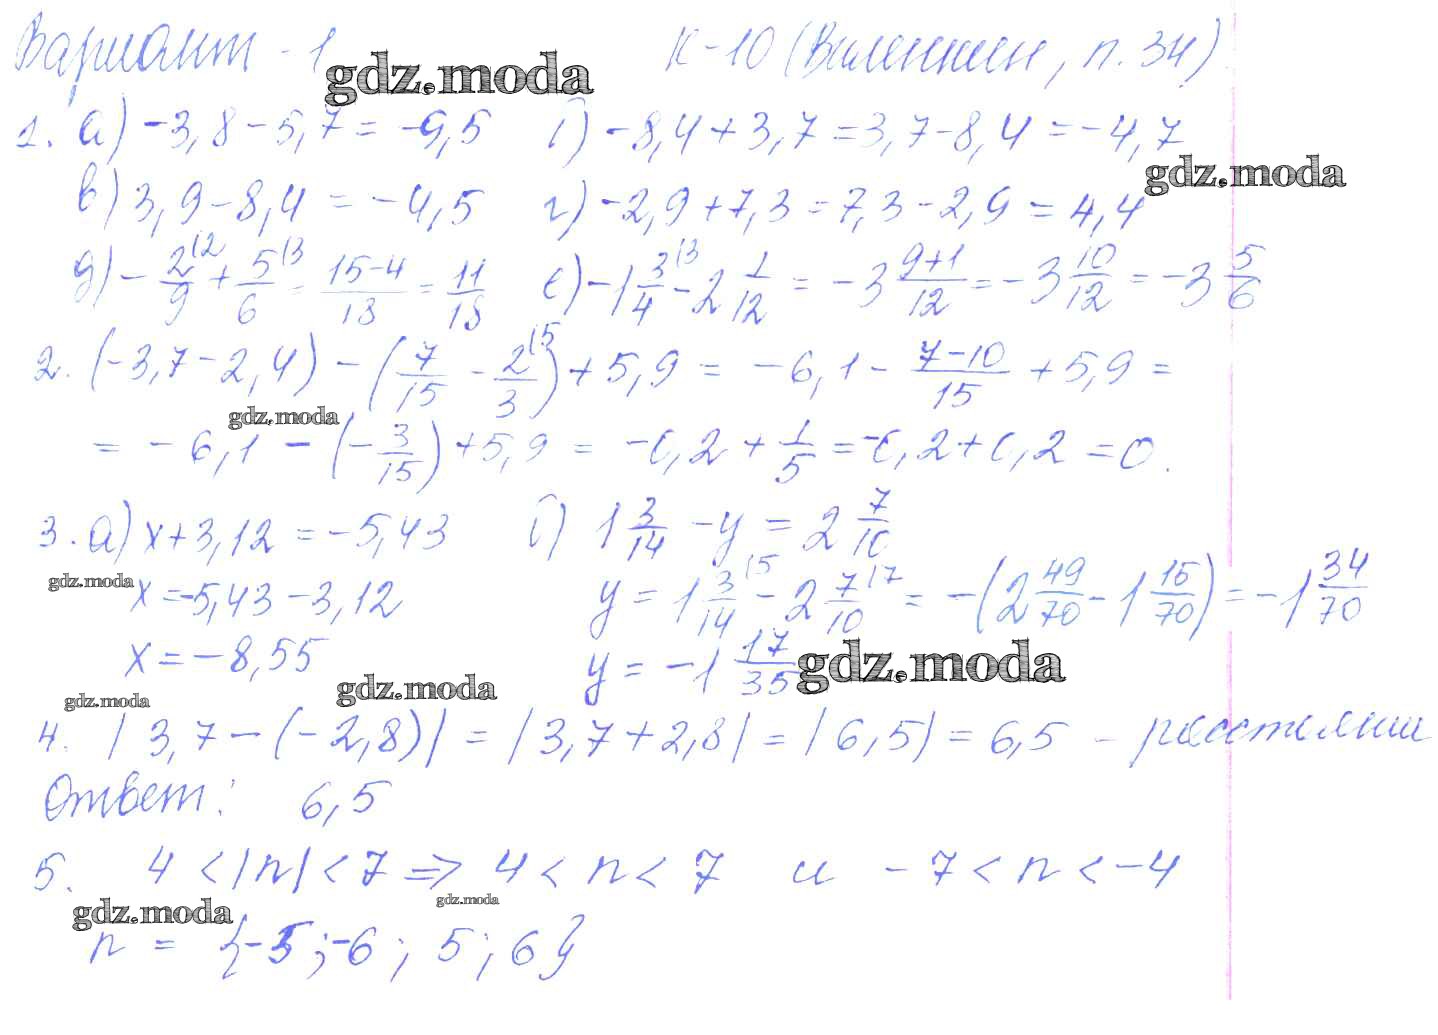 Вариант - 1 К-10 (Виленкин, п. 34)
gdz.moda
1. а) -3,8 - 5,7 = -9,5 б) -8,4 + 3,7 = 3,7 - 8,4 = -4,7
gdz.moda
в) 3,9 - 8,4 = -4,5 г) -2,9 + 7,3 = 7,3 - 2,9 = 4,4
д) - 2/9 (2 + 5/6 (3 = 15-4/18 = 11/18 е) -1 3/4 (3 - 2 1/12 = -3 9+1/12 = -3 10/12 = -3 5/6
2. (-3,7 - 2,4) - (7/15 - 2/3 (5) + 5,9 = -6,1 - 7-10/15 + 5,9 =
gdz.moda
= -6,1 - (-3/15) + 5,9 = -0,2 + 1/5 = -0,2 + 0,2 = 0.
3. а) x + 3,12 = -5,43 б) 1 3/14 - y = 2 7/10
gdz.moda
x = -5,43 - 3,12 y = 1 3/14 (5 - 2 7/10 (7 = -(2 49/70 - 1 15/70) = -1 34/70
x = -8,55 y = -1 17/35
gdz.moda
gdz.moda
gdz.moda
4. |3,7 - (-2,8)| = |3,7 + 2,8| = |6,5| = 6,5 -
Ответ: 6,5
5. 4 < |n| < 7 => 4 < n < 7 и -7 < n < -4
gdz.moda
gdz.moda
n = {-5; -6; 5; 6}